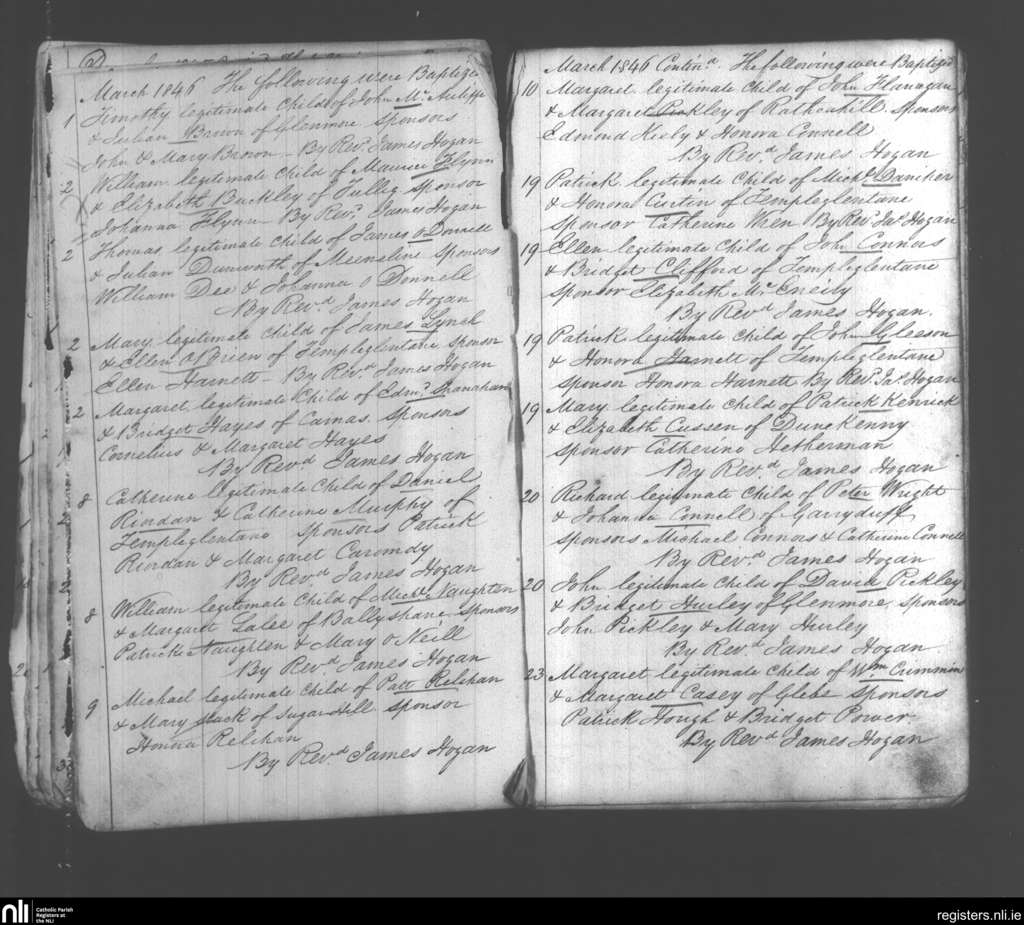 March 1846 The following were Baptized
1 Timothy legitimate Child of John Mc Auliffe
& Julian Brown of Glenmore Sponsors
John & Mary Brown - By Revd. James Hogan
2 William legitimate Child of Maurice Flynn
& Elizabeth Buckley of Tullig Sponsor
Johanna Flynn - By Revd. James Hogan
2 Thomas legitimate Child of James O Donnell
& Julian Dunworth of Meenoline Sponsors
William Dee & Johanna O Donnell
By Revd James Hogan
2 Mary legitimate Child of James Lynch
& Ellen O'Brien of Templeglentane Sponsor
Ellen Harnett - By Revd James Hogan
2 Margaret legitimate Child of Edmd. Shanahan
& Bridget Hayes of Camas. Sponsors
Cornelius & Margaret Hayes
By Revd James Hogan
8 Catherine legitimate Child of Daniel
Riordan & Catherine Murphy of
Templeglentane Sponsors Patrick
Riordan & Margaret Caromdy
By Revd James Hogan
8 William legitimate Child of Michl Naughten
& Margaret Lalee of Ballyshane Sponsors
Patrick Naughten & Mary O Neill
By Revd James Hogan
9 Michael legitimate Child of Patt Relihan
& Mary Stack of Sugar Hill Sponsor
Honora Relihan
By Revd James Hogan
March 1846 Contind. The following were Baptized
10 Margaret legitimate Child of John Flanagan
& Margaret Pickley of Rathcahill Sponsors
Edmond Kiely & Honora Connell
By Revd James Hogan
19 Patrick legitimate Child of Michl Danaher
& Honora Curtin of Templeglentane
Sponsor Catherine Wren By Revd Jas Hogan
19 Ellen legitimate Child of John Connors
& Bridget Clifford of Templeglentane
Sponsor Elizabeth Mc Eneiry
By Revd James Hogan.
19 Patrick legitimate Child of John Gleeson
& Honora Harnett of Templeglentane
Sponsor Honora Harnett By Revd Jas Hogan
19 Mary legitimate Child of Patrick Kenrick
& Elizabeth Cussen of Dunckenny
Sponsor Catherine Hetherman
By Revd James Hogan
20 Richard legitimate Child of Peter Wright
& Johanna Connell of Garryduff
Sponsors Michael Connors & Catherine Connell
By Revd. James Hogan
20 John legitimate Child of David Pickley
& Bridget Hurley of Glenmore, Sponsors
John Pickley & Mary Hurley
By Revd James Hogan
23 Margaret legitimate Child of Wm Crimmin
& Margaret Casey of Glebe Sponsors
Patrick Hough & Bridget Power
By Revd James Hogan
nli Catholic Parish
Registers at
the NLI
registers.nli.ie